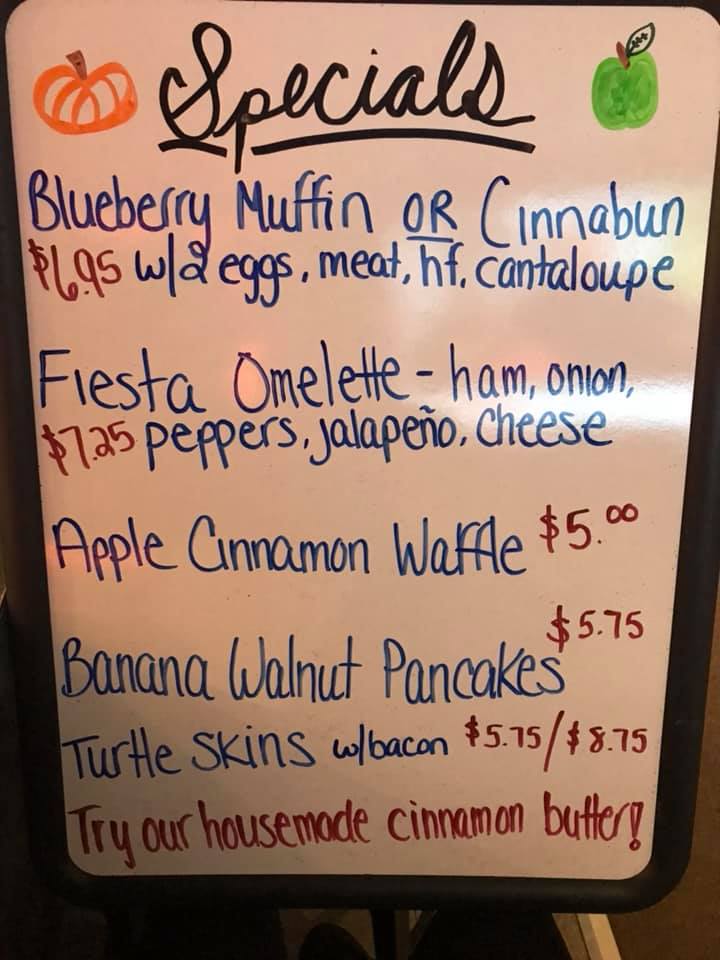 Specials
Blueberry Muffin OR Cinnabun
$6.95 w/2 eggs, meat, hf, cantaloupe
Fiesta Omelette - ham, onion,
$7.25 peppers, jalapeño, cheese
Apple Cinnamon Waffle $5.00
$5.75
Banana Walnut Pancakes
Turtle Skins w/bacon $5.75/$8.75
Try our housemade cinnamon butter!